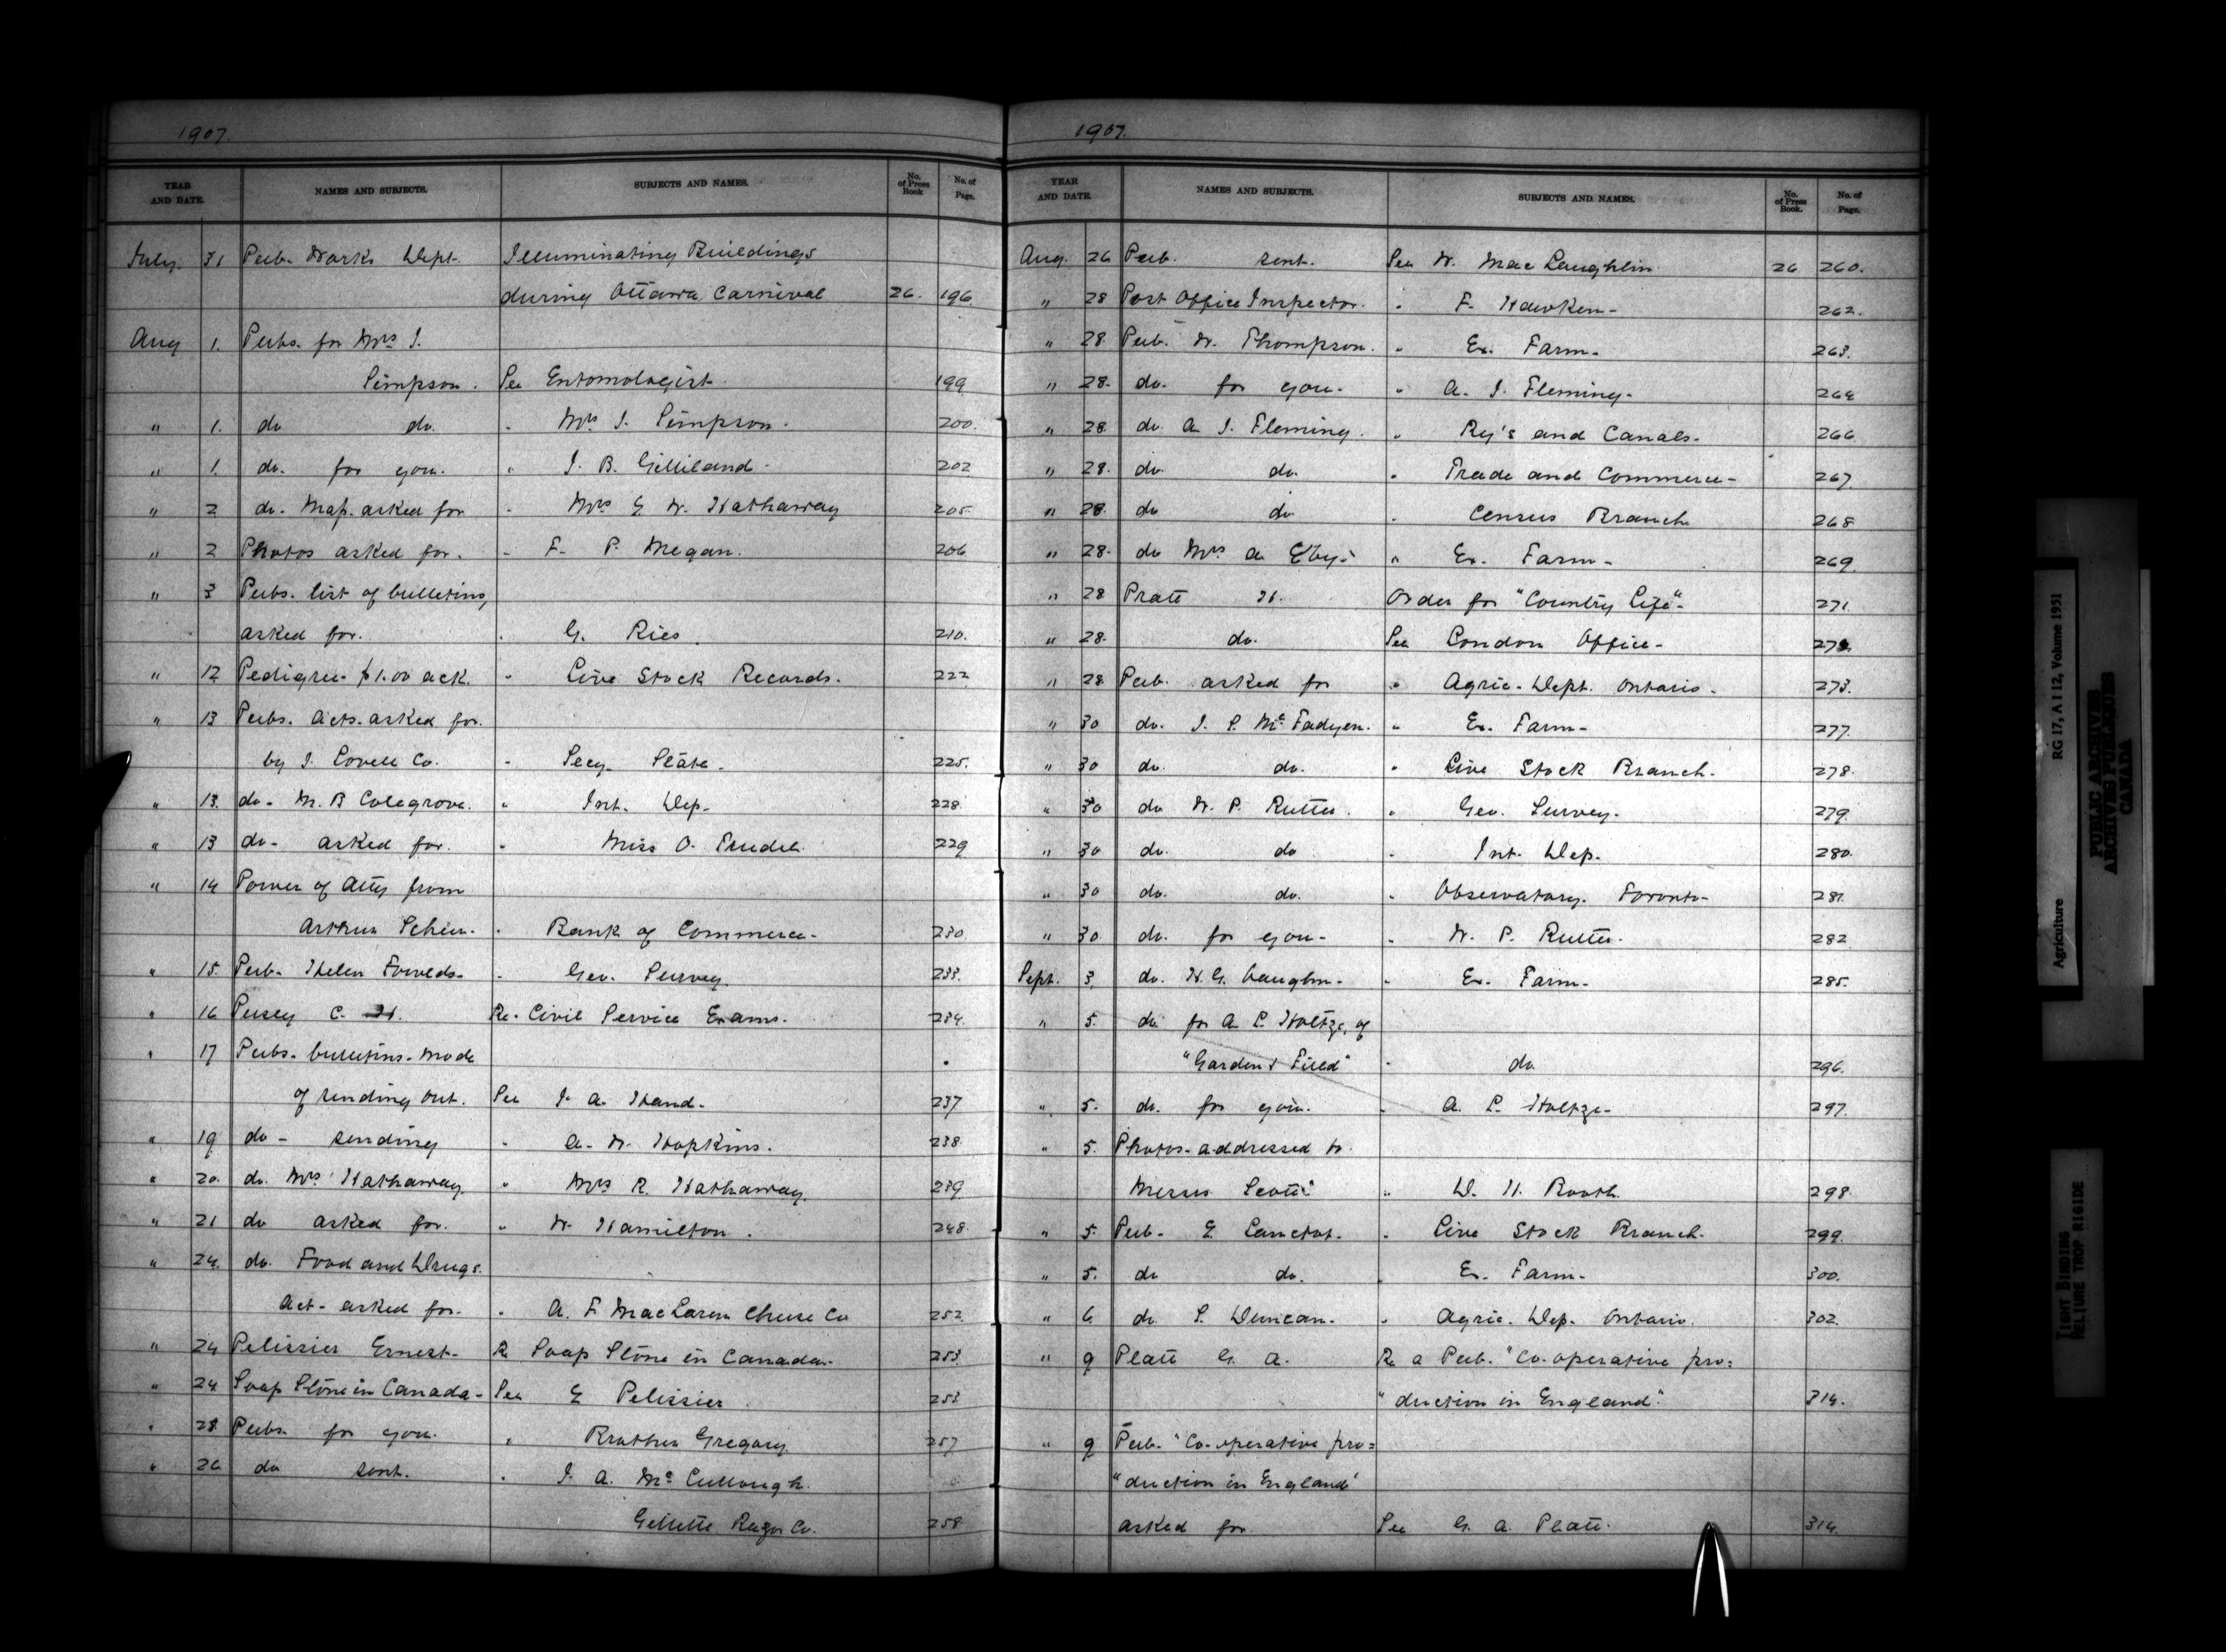 1907.
YEAR AND DATE. NAMES AND SUBJECTS. SUBJECTS AND NAMES. No. of Press Book No. of Page.
July 31 Pub. Works Dept. Illuminating Buildings
during Ottawa Carnival 26. 196.
Aug 1. Pubs. for Mrs J.
Simpson. See Entomologist. 199
" 1. do do. " Mrs J. Simpson. 200.
" 1. do. for you. " J. B. Gilliland. 202
" 2 do. Map. asked for " Mrs G. W. Hathaway 205.
" 2 Photos asked for. " F. P. Megan. 206
" 3 Pubs. list of bulletins,
asked for. " G. Ries. 210.
" 12 Pedigree. $1.00 ack. " Live Stock Records. 222
" 13 Pubs. Acts. asked for.
by J. Lovell Co. " Secy. State. 225.
" 13. do. M. B Colegrove. " Int. Dep. 228.
" 13 do. asked for. " Miss O. Trudel. 229
" 14 Power of Atty from
Arthur " Bank of Commerce. 230
" 15. Pub. Helen " Geo. Survey. 233.
" 16 Pusey C. H. Re. Civil Service Exams. 234.
" 17 Pubs. bulletins. mode
of sending out. See J. A. Hand. 237
" 19 do. sending " A. W. Hopkins. 238
" 20. do. Mrs Hathaway. " Mrs R. Hathaway. 239
" 21 do asked for. " W. Hamilton. 248.
" 24. do. Food and Drugs.
Act. asked for. " A. F. MacLaren Cheese Co 252
" 24 Pelissier Ernest. Re Soap Stone in Canada. 253.
" 24 Soap Stone in Canada. See E Pelissier. 253
" 28. Pubs. for you. " Brother Gregory. 257
" 26 do sent. " J. A. McCullough.
Gellette Razor Co. 258
1907.
YEAR AND DATE. NAMES AND SUBJECTS. SUBJECTS AND NAMES. No. of Press Book. No. of Page.
Aug. 26 Pub. sent. See W. MacLaughlin. 26 260.
" 28 Post Office Inspector. " F. Hawken. 262.
" 28 Pub. W. Thompson. " Ex. Farm. 263.
" 28. do. for you. " A. J. Fleming. 264
" 28 do. A J. Fleming. " Ry's and Canals. 266
" 28. do. do. " Trade and Commerce. 267
" 28. do do " Census Branch 268
" 28. do Mrs A. Eby. " Ex. Farm. 269.
" 28 Pratt H. Order for "Country Life". 271.
" 28. do. See London Office.
" 28 Pub. asked for " Agric. Dept. Ontario. 273.
" 30 do. J. P. McFadyen. " Ex. Farm. 277.
" 30 do. do. " Live Stock Branch. 278.
" 30 do W. P. Rutter. " Geo. Survey. 279.
" 30 do. do " Int. Dep. 280.
" 30 do. do. " Observatory. Toronto. 281.
" 30 do. for you. " W. P. Rutter. 282
Sept. 3 do. H. G. Vaughn. " Ex. Farm. 285.
" 5. do. for A L. Holtze, of
"Garden & Field" " do. 296.
" 5. do. for you. " A. L. Holtze. 297.
" 5. Photos. addressed to
Messrs Scott. " D. H. Booth. 298.
" 5. Pub. E Lanctot. " Live Stock Branch. 299.
" 5. do do. " Ex. Farm. 300.
" 6 do. S. Duncan. " Agric. Dep. Ontario. 302.
" 9 Platt G. A. Re a Pub. "Co-operative pro=
"duction in England." 314.
" 9 Pub. "Co-operative pro=
"duction in England"
asked for See G. A. Platt. 314.
Agriculture RG 17, A I 12, Volume 1951
PUBLIC ARCHIVES
ARCHIVES PUBLIQUES
CANADA
TIGHT BINDING
RELIURE TROP RIGIDE